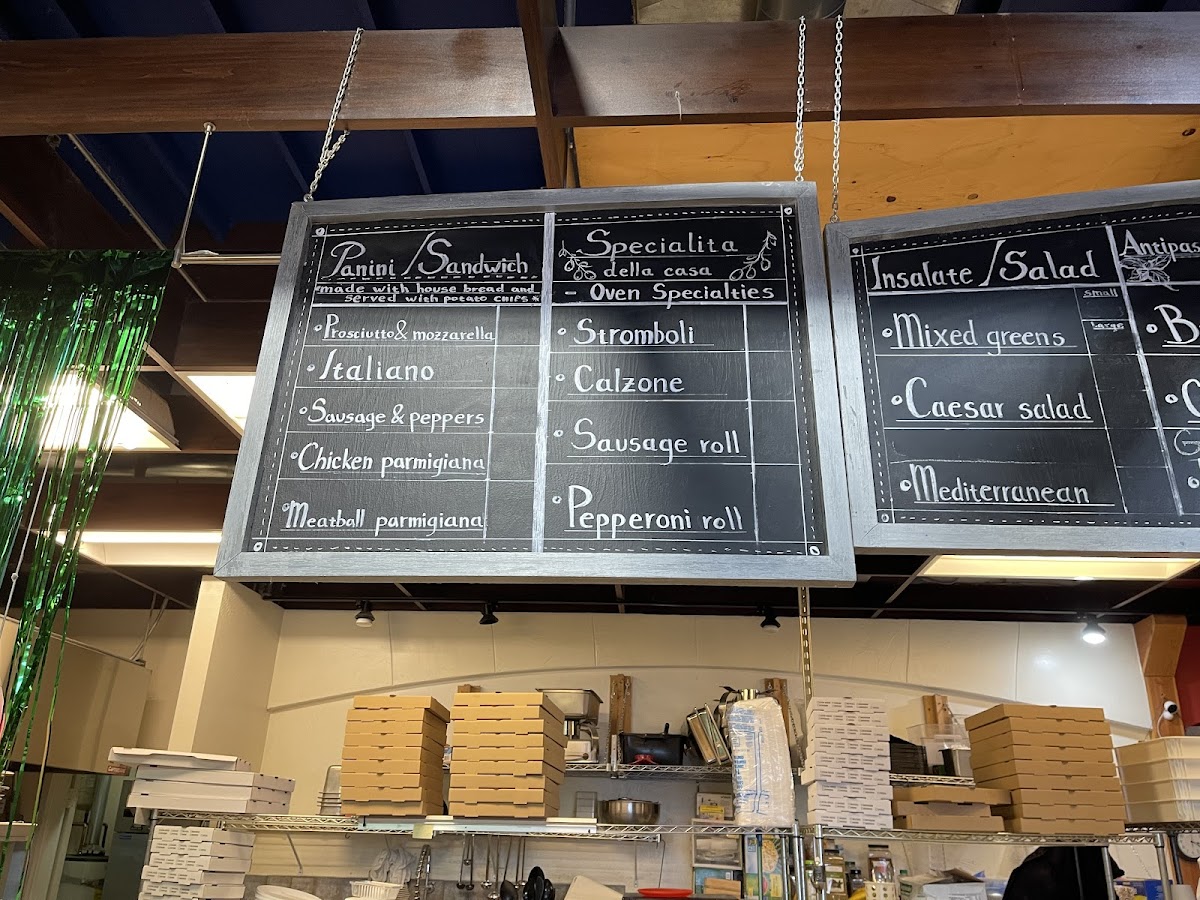 Panini / Sandwich
made with house bread and
served with potato chips *
Prosciutto & mozzarella
Italiano
Sausage & peppers
Chicken parmigiana
Meatball parmigiana
Specialita
della casa
- Oven Specialties
Stromboli
Calzone
Sausage roll
Pepperoni roll
Insalate / Salad
Small
Large
Mixed greens
Caesar salad
Mediterranean
Antipas
B
C